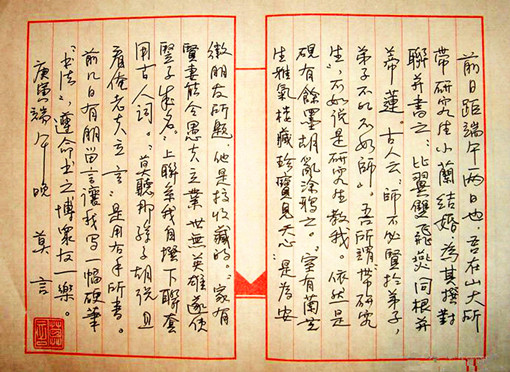 前日距端午两日也，吾在山大所
带研究生小蘭結婚，為其撰對
聯并書之：比翼雙飛燕，同根并
蒂蓮。古人云：師不必賢於弟子，
弟子不必不如師。吾所謂帶研究
生，不如说是研究生教我。依然是
硯有餘墨胡亂涂鴉之。“室有蘭芝
生雅氣，楼藏珍寶見天心”是為安
徽朋友所题，他是搞收藏的。“家有
賢妻能令愚夫立業，世無英雄遂使
豎子成名”上聯系我自撰，下聯套
用古人词。“莫聽那孫子胡说，且
看俺老夫立言”是用右手所書。
前几日有朋留言讓我写一幅硬筆
“书法”，遵命书之博眾友一樂。
庚寅端午晚 莫言